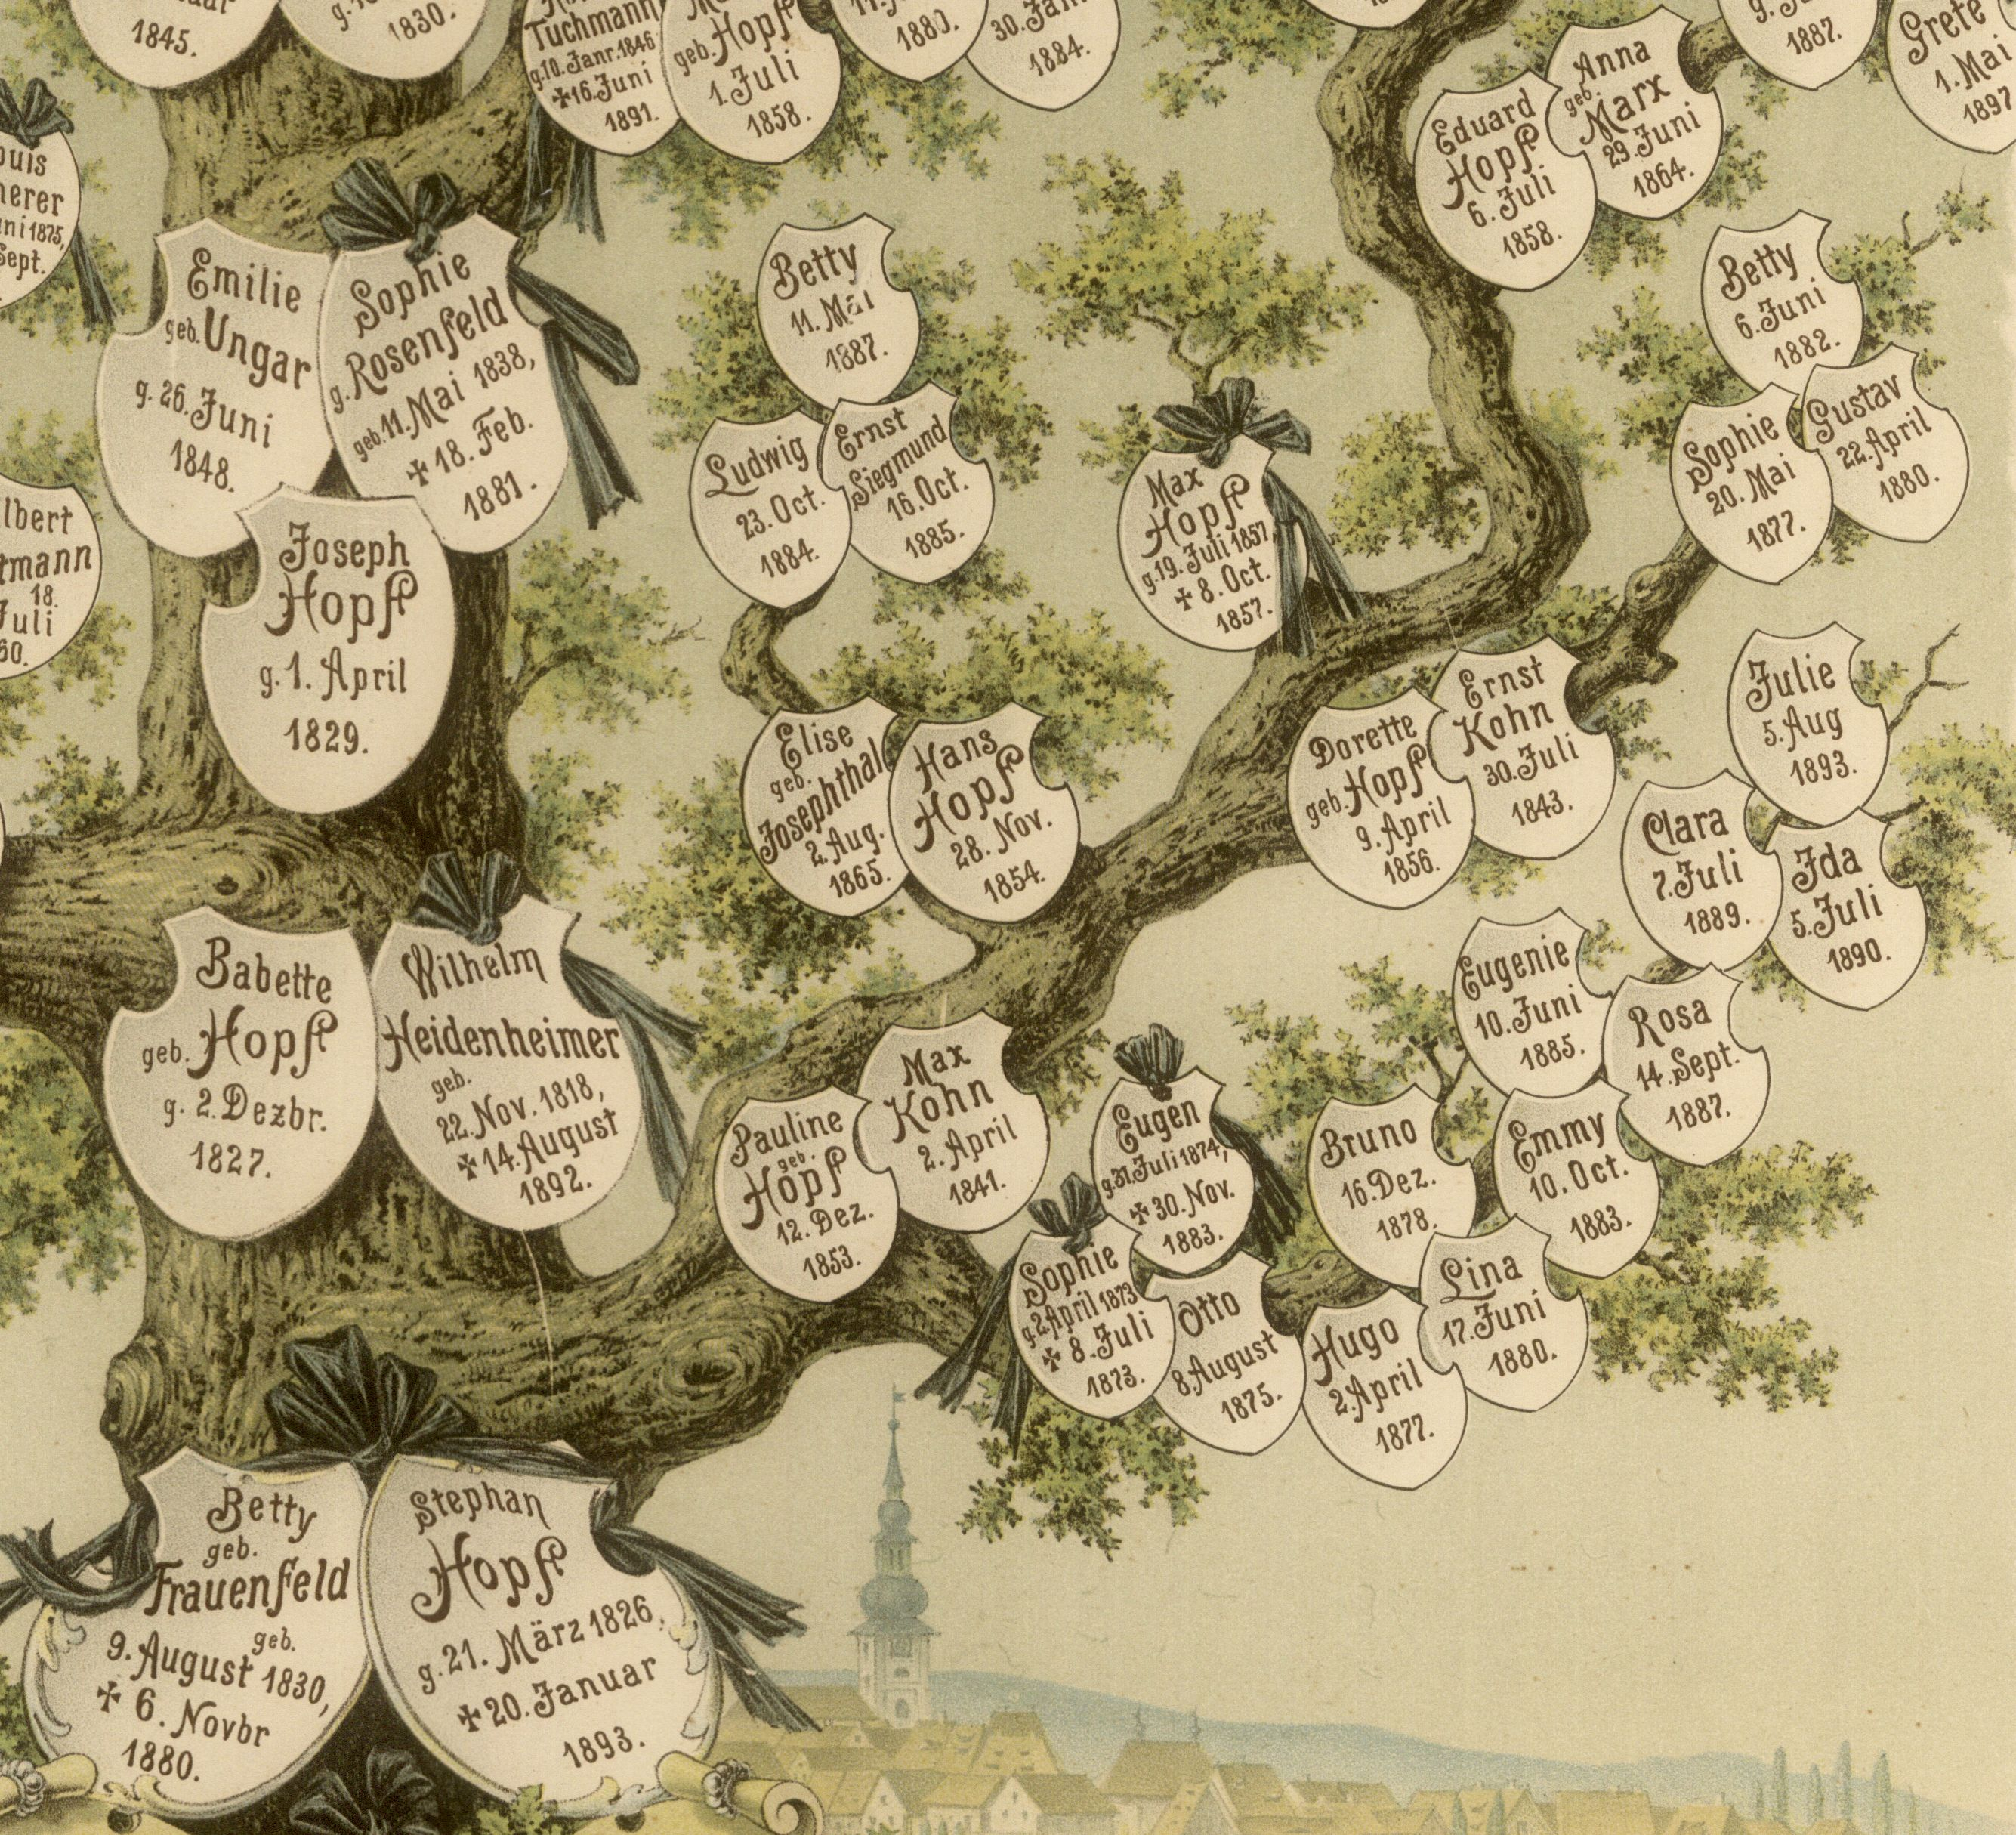 1845.
1830.
Tuchmann
g.10. Janr. 1846
✝16. Juni
1891.
geb. Hopf
1. Juli
1858.
1880.
30. Jan.
1884.
Anna
geb.
Marx
29. Juni
1864.
1887.
Grete
1. Mai
1897
Eduard
Hopf.
6. Juli
1858.
Sept.
Emilie
geb. Ungar
g. 26. Juni
1848.
Sophie
g. Rosenfeld
geb. 11. Mai 1838,
✝ 18. Feb.
1881.
Betty
11. Mai
1887.
Ludwig
23. Oct.
1884.
Ernst
Siegmund
16. Oct.
1885.
Max
Hopf
g. 19. Juli 1857,
✝ 8. Oct.
1857.
Betty
6. Juni
1882.
Sophie
20. Mai
1877.
Gustav
22. April
1880.
lbert
rmann
18.
Juli
60.
Joseph
Hopf
g. 1. April
1829.
Elise
geb.
Josephthal
2. Aug.
1865.
Hans
Hopf
28. Nov.
1854.
Dorette
geb. Hopf
9. April
1856.
Ernst
Kohn
30. Juli
1843.
Julie
5. Aug
1893.
Clara
7. Juli
1889.
Ida
5. Juli
1890.
Babette
geb. Hopf
g. 2. Dezbr.
1827.
Wilhelm
Heidenheimer
geb.
22. Nov. 1818,
✝ 14. August
1892.
Pauline
geb.
Hopf
12. Dez.
1853.
Max
Kohn
2. April
1841.
Eugen
g. 31. Juli 1874,
✝ 30. Nov.
1883.
Sophie
g. 2. April 1873
✝ 8. Juli
1873.
Otto
8. August
1875.
Hugo
2. April
1877.
Lina
17. Juni
1880.
Bruno
16. Dez.
1878.
Emmy
10. Oct.
1883.
Eugenie
10. Juni
1885.
Rosa
14. Sept.
1887.
Betty
geb.
Frauenfeld
geb.
9. August 1830,
✝ 6. Novbr
1880.
Stephan
Hopf
g. 21. März 1826,
✝ 20. Januar
1893.